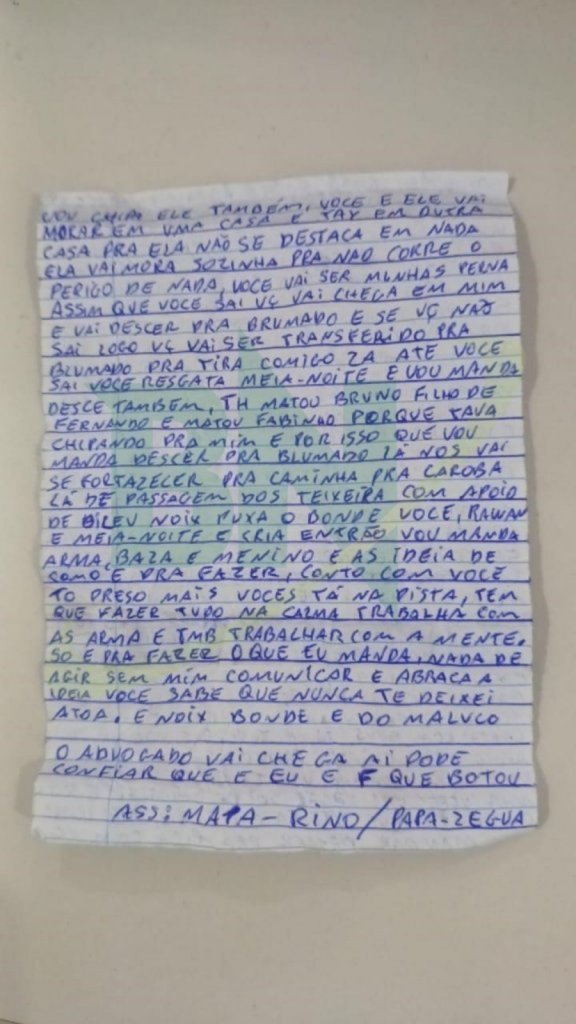 VOU CHIPA ELE TAMBÉM, VOCE E ELE VAI
MORAR EM UMA CASA E TAY EM OUTRA
CASA PRA ELA NÃO SE DESTACA EM NADA
ELA VAI MORA SOZINHA PRA NAO CORRE O
PERIGO DE NADA, VOCE VAI SER MINHAS PERNA
ASSIM QUE VOCE SAI VÇ VAI CHEGA EM MIM
E VAI DESCER PRA BRUMADO E SE VÇ NAO
SAI LOGO VÇ VAI SER TRANSFERIDO PRA
BLUMADO PRA TIRA COMIGO LA ATE VOCE
SAI VOCE RESGATA MEIA-NOITE E VOU MANDA
DESCE TAMBEM, TH MATOU BRUNO FILHO DE
FERNANDO E MATOU FABINHO PORQUE TAVA
CHIPANDO PRA MIM E POR ISSO QUE VOU
MANDA DESCER PRA BLUMADO LÁ NOS VAI
SE FORTALECER PRA CAMINHA PRA CAROBA
LÁ DE PASSAGEM DOS TEIXEIRA COM APOIO
DE NOIX PUXA O BONDE VOCE, RAWAN
E MEIA-NOITE E CRIA ENTRÃO VOU MANDA
ARMA, BALA E MENINO E AS IDEIA DE
COMO E PRA FAZER, CONTO COM VOCE
TO PRESO MAIS VOCES TÁ NA PISTA, TEM
QUE FAZER TUDO NA CALMA TRABALHA COM
AS ARMA E TMB TRABALHAR COM A MENTE.
SO E PRA FAZER O QUE EU MANDA, NADA DE
AGIR SEM MIM COMUNICAR E ABRAÇA A
IDEIA VOCE SABE QUE NUNCA TE DEIXEI
ATOA. E NOIX BONDE E DO MALUCO
O ADVOGADO VAI CHEGA AI PODE
CONFIAR QUE E EU E F QUE BOTOU
ASS: MATA-RINO/PAPA-LEGUA